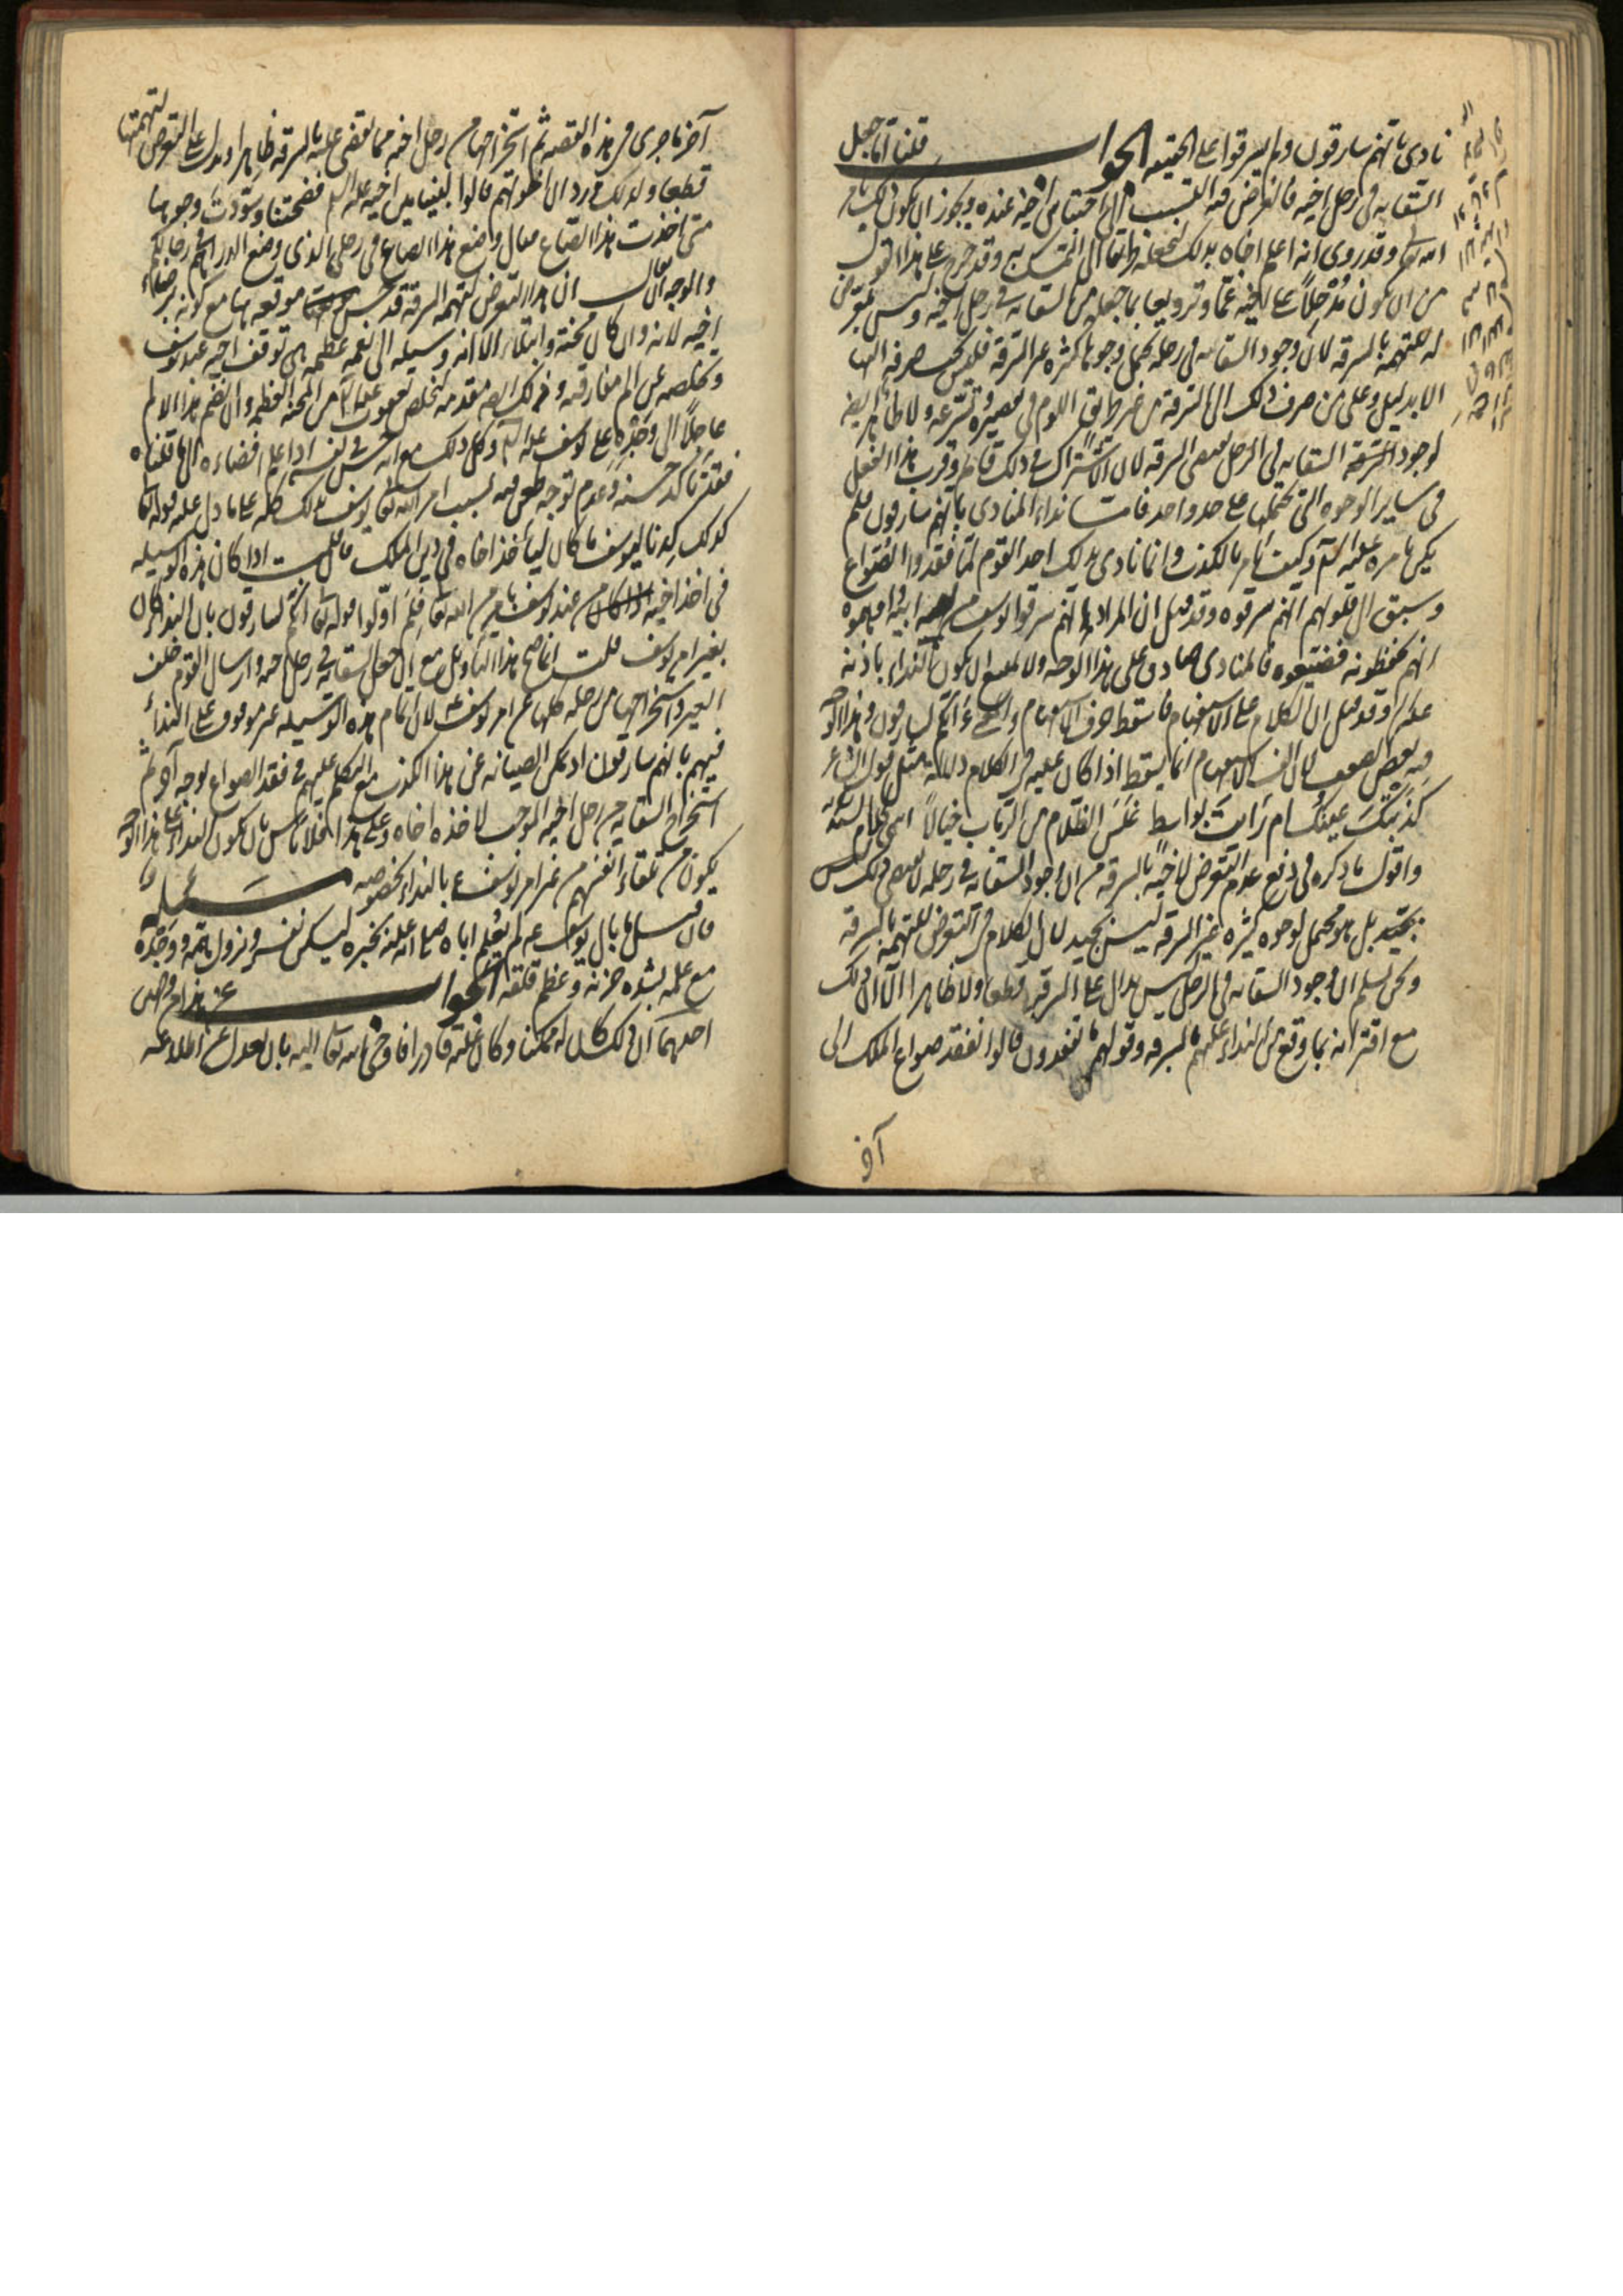 نادى بانهم سارقون ولم يسرقوا على الحقيقه الجواب قلنا اما جعل
السقايه فى رحل اخيه فالغرض فيه التسبب الى احتباس اخيه عنده ويجوز ان يكون ذلك بامر
الله تعالى وقد روى انه اعلم اخاه بذلك ليجعله طريقا الى التمسك به وقد خرج على هذا القول
من ان يكون مُدْخِلاً على اخيه غمّا وترويعا بما جعله من السقايه فى رحل اخيه وليس بمعرّض
له للتهمه بالسرقه لان وجود السقايه فى رحله يحتمل وجوها كثيره غير السرقة فليس يجب صرفه اليها
الا بدليل وعلى من صرف ذلك الى السرقة من غير طريق اللوم فى تقصيره وتسرّعه ولا ظاهر ايضا
لوجود السقايه فى الرحل يقتضى السرقه لان الاشتراك فى ذلك قائم وقرب هذا الفعل
فى ساير الوجوه التى يحتملها على حد واحد فاما نداء المنادى بانهم سارقون فلم
يكن بامره عليه السلام وكيف يامر بالكذب وانما نادى بذلك احد القوم لما فقدوا الصّواع
وسبق الى قلوبهم انهم سرقوه وقد قيل ان المراد بانهم سارقون انهم سرقوا يوسف من ابيه واوهموه
انهم يحفظونه فضيّعوه فالمنادى صادق على هذا الوجه ولا يمتنع ان يكون النداء باذنه
عليه السلام وقد قيل ان الكلام على الاستفهام فاسقط حرف الاستفهام والمعنى ءانكم لسارقون وهذا الوجه
فيه بعض الضعف لان الف الاستفهام انما يسقط اذا كان عليه فى الكلام دلالة مثل قول الشاعر
كَذَبَتْكَ عَينُكَ ام رَايتَ بواسط غَلَسَ الظّلام من الرّباب خيالاً انتهى كلام السيد
واقول ما ذكره فى دفع عدم التعرض لاخيه بالسرقه من ان وجود السقايه فى رحله لا يقتضى ذلك ليس
بجيّد بل هو محتمل لوجوه كثيره غير السرقه ليس بجيد لان الكلام فى التعرض للتهمه بالسرقه
ونحن نسلم ان وجود السقايه فى الرحل ليس بدال على السرقه قطعا ولا ظاهرا الا ان ذلك
مع اقترانه بما وقع من النداء عليهم بالسرقه وقولهم ما تفقدون قالوا نفقد صواع الملك الى
آخر
آخر ما جرى فى هذه القصه ثم استخراجها من رحل اخيه مما يقضى عليه بالسرقه ظاهرا ويدل على التعرض لتهمتها
قطعا ولذلك ورد ان اخوتهم قالوا لبنيامين اخيه عليه السلام فضحتنا وسوّدت وجوهنا
متى اخذت هذا الصّاع فقال وضع هذا الصاع فى رحلى الذى وضع الدراهم فى رحالكم
والوجه ان يقال ان هذا التعرض لتهمه السرقة قد حسن موقعه هنا مع كونه برضاء
اخيه لانه وان كان محنة وابتلاء الا انه وسيله الى نعمه عظيمه هى توقف اخيه عند يوسف
وتخلصه عن الم مفارقته وذلك ايضا مقدمه لتخلص يعقوب عليه السلام من المحنه العظيمه وان انضم هذا الالم
عاجلاً الى وَجْدِه على يوسف عليه السلام وكل ذلك مع انه حسن فى نفسه اذا علم افضاءه الى ما قلناه
فقد تاكد حسنه وعدم توجه طعن فيه بسبب امر الله تعالى يوسف بذلك كله على ما دل عليه قوله تعالى
كذلك كِدنا ليوسف ما كان ليأخذ اخاه فى دين الملك فان قلت اذا كان هذه الوسيله
فى اخذ اخيه من عند يوسف بامر من الله تعالى فلِمَ اوّلوا قوله تعالى انكم لسارقون بان النداء كان
بغير امر يوسف قلت انما صح هذا التاويل مع ان جعل السقايه فى رحل اخيه وارسال القوم خلف
العير واستخراجها من رحله كلها عن امر يوسف لان اتمام هذه الوسيله غير موقوف على النداء
فيهم بانهم سارقون اذ يمكن الصيانه عن هذا الكذب مع التكلم عليهم فى فقد الصواع بوجه آخر ثم
استخراج السقايه من رحل اخيه الموجب لاخذه اخاه وعلى هذا فلا باس بان يكون النداء على هذا الوجه
يكون من تلقاء انفسهم من غير امر يوسف ع بالنداء بخصوصه مسئله
فان قيل ما بال يوسف ع لم يُعلِم اباه صلى الله عليه بخبره ليسكن نفسه ويزول همّه ووَجْدُه
مع علمه بشده حزنه وعظم قلقه الجواب عن هذا وجهان
احدهما ان ذلك كان له ممكنا وكان عليه قادرا فاوحى الله تعالى اليه بان يعدل عن اطلاعه